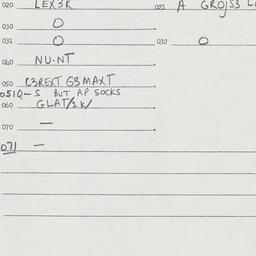 020 LEX3R 022 A GROJS3 L
030 O
031 O 032 O
040 NU·NT
050 C3REXT G3MAXT
051Q-S BUT AP SOCKS
060 GLAT/1K/
070 —
071 —